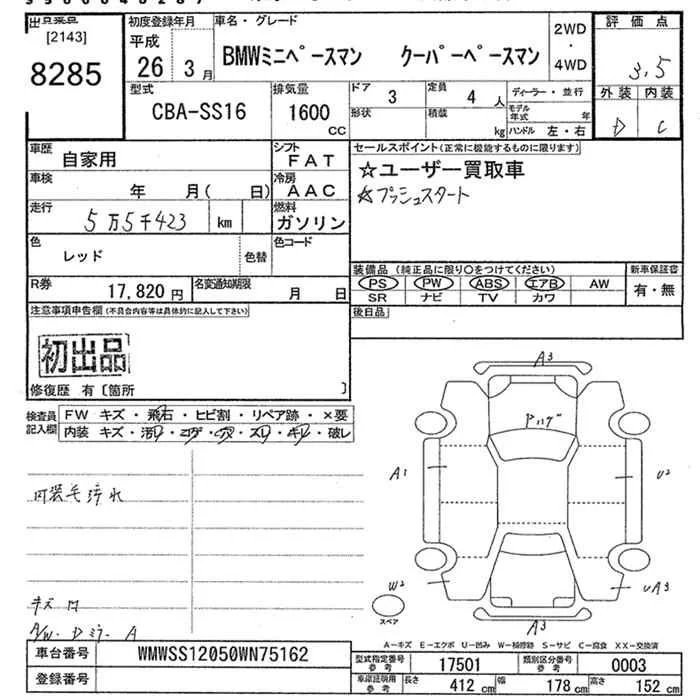 出品業点
[2143]
8285
初度登録年月
平成
26 3月
車名・グレード
BMWミニペースマン クーパーペースマン
2WD
・
4WD
評価点
3.5
外装 内装
D C
型式
CBA-SS16
排気量
1600
CC
ドア
3
定員
4人
形状
積載
kg
ディーラー・並行
モデル年式 年
ハンドル 左・右
車歴
自家用
シフト
FAT
車検
年 月( 日)
冷房
AAC
走行
5万5千423 km
燃料
ガソリン
色
レッド
色替
色コード
R券
17,820円
名変通知期限
月 日
セールスポイント(正常に機能するものに限ります)
☆ユーザー買取車
☆プッシュスタート
装備品(純正品に限り〇をつけてください)
PS PW ABS エアB AW
SR ナビ TV カワ
新車保証書
有・無
後日品
注意事項申告欄(不具合内容等は具体的に記入して下さい)
初出品
修復歴 有〔箇所 〕
検査員
記入欄
FW キズ・飛石・ヒビ割・リペア跡・×要
内装 キズ・汚れ・コゲ・穴・スレ・キレ・破レ
内装毛汚れ
キズ 凹
A/W・Dミラー A
A3
A1
U2
W2
UA3
A3
スペア
A-キズ E-エクボ U-凹み W-補修跡 S-サビ C-腐食 XX-交換済
車台番号
WMWSS12050WN75162
登録番号
型式指定番号
参考
17501
類別区分番号
参考
0003
車庫証明用
参考
長さ
412cm
幅
178cm
高さ
152cm